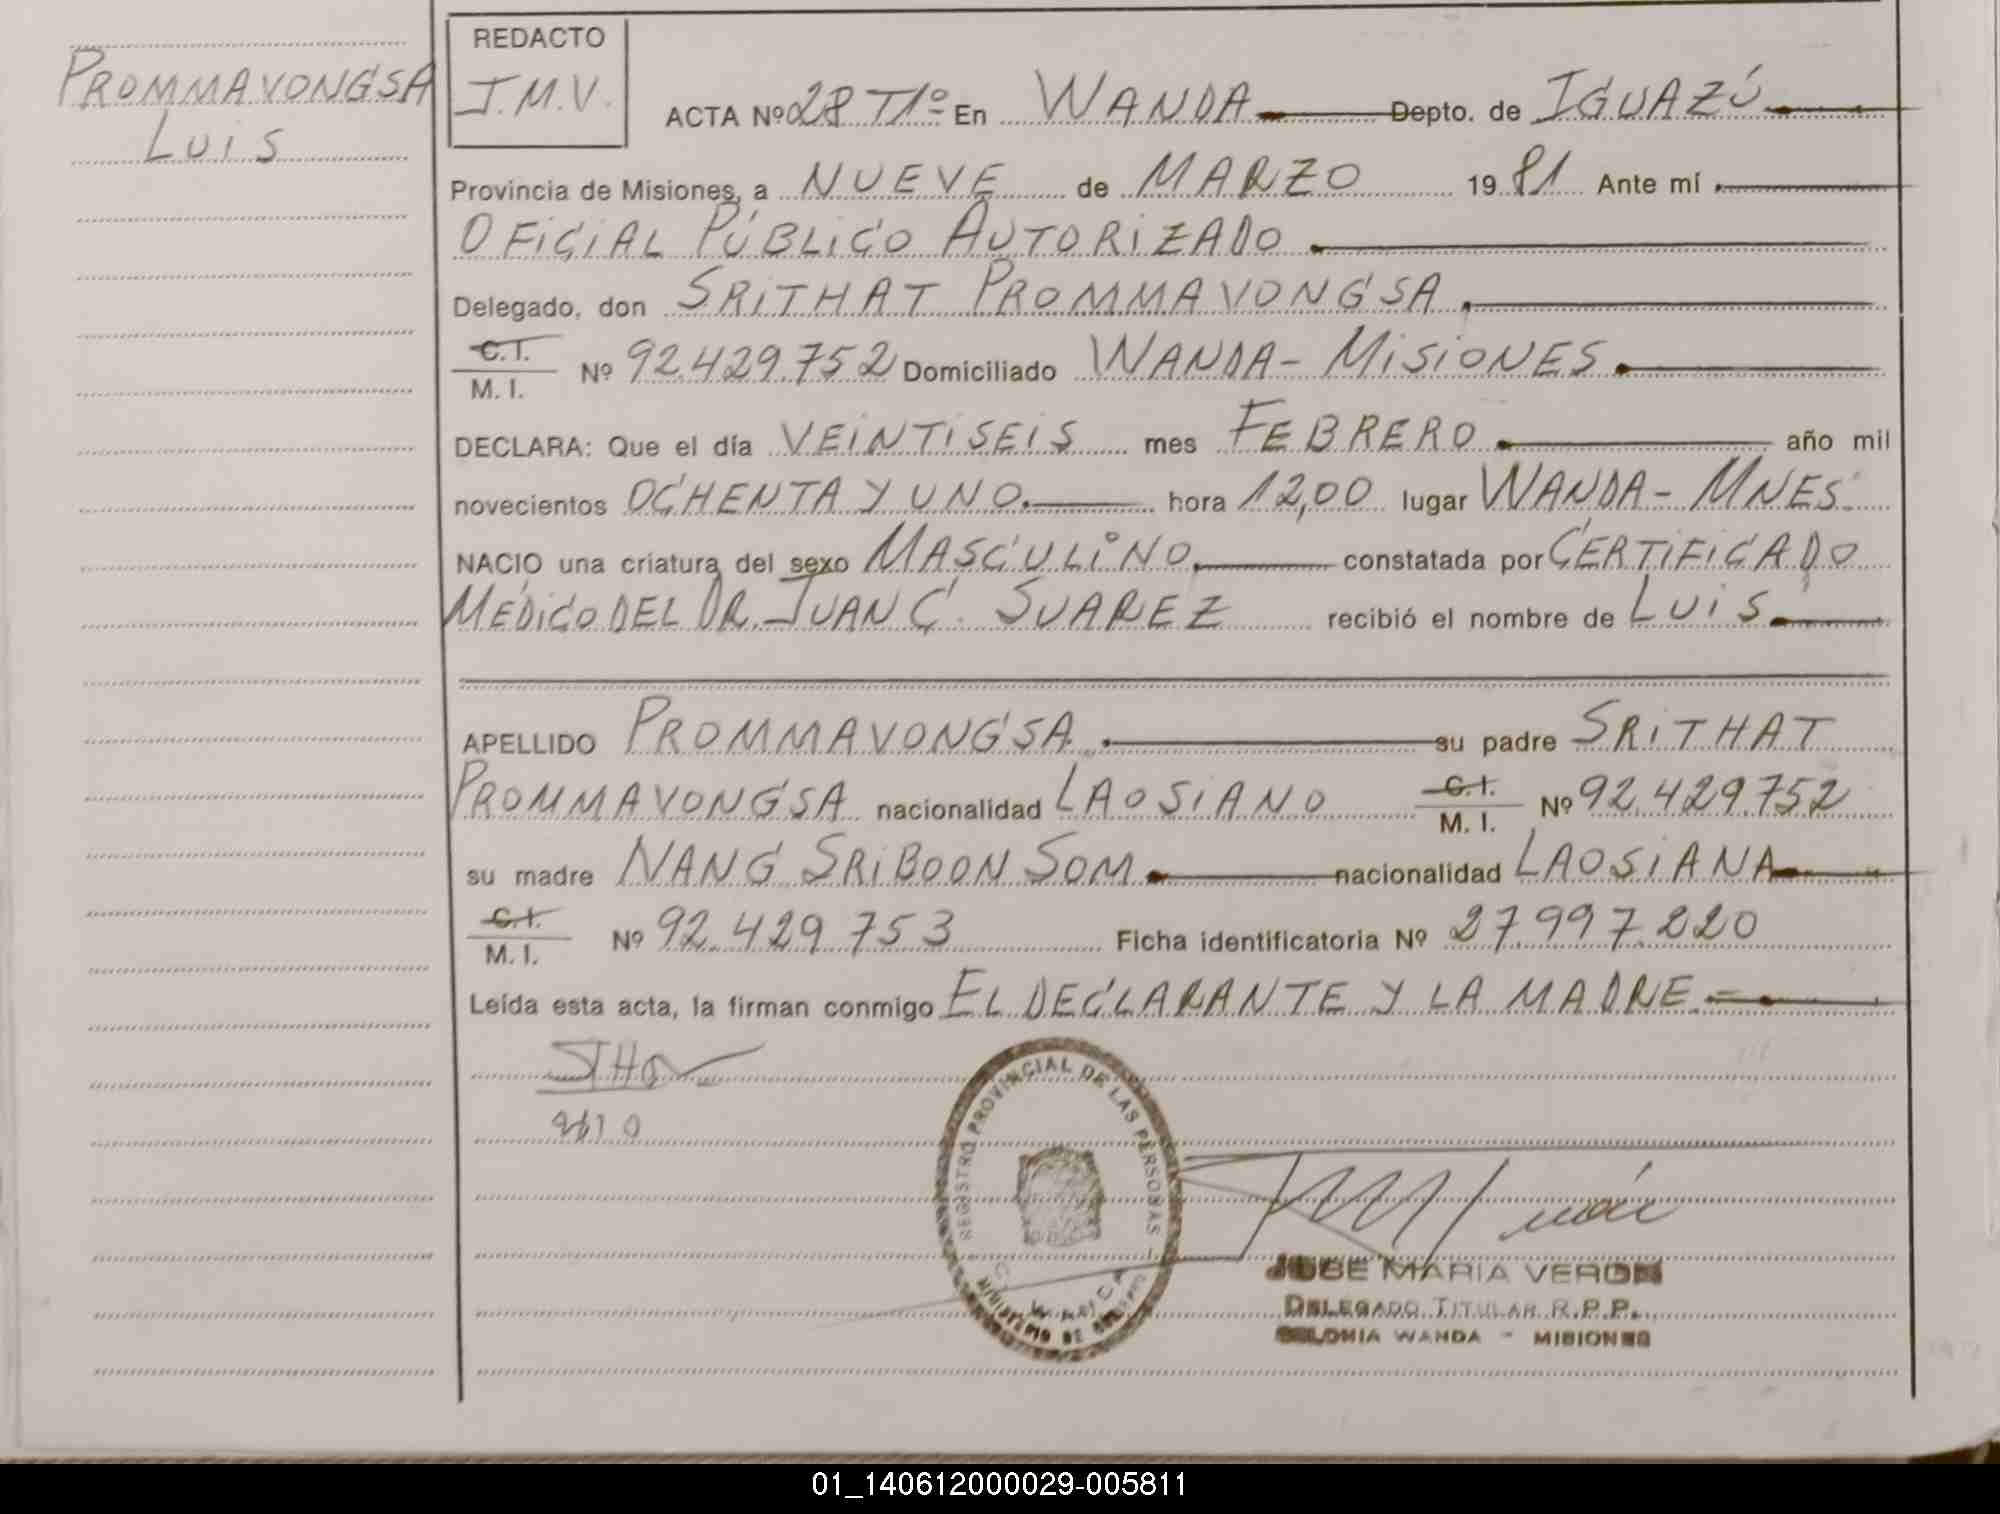 PROMMAVONGSA
LUIS
REDACTO
J.M.V.
ACTA Nº 28 T1º En WANDA Depto. de IGUAZÚ
Provincia de Misiones, a NUEVE de MARZO 1981 Ante mí
OFICIAL PÚBLICO AUTORIZADO
Delegado, don SRITHAT PROMMAVONGSA
C.I.
M. I. Nº 92.429.752 Domiciliado WANDA - MISIONES
DECLARA: Que el día VEINTISEIS mes FEBRERO año mil
novecientos OCHENTA Y UNO hora 12,00 lugar WANDA - MNES.
NACIO una criatura del sexo MASCULINO constatada por CERTIFICADO
MÉDICO DEL DR. JUAN C. SUAREZ recibió el nombre de LUIS
APELLIDO PROMMAVONGSA su padre SRITHAT
PROMMAVONGSA nacionalidad LAOSIANO C.I. M. I. Nº 92.429.752
su madre NANG SRIBOON SOM nacionalidad LAOSIANA
C.I.
M. I. Nº 92.429.753 Ficha identificatoria Nº 27.997.220
Leída esta acta, la firman conmigo EL DECLARANTE Y LA MADRE
REGISTRO PROVINCIAL DE LAS PERSONAS
MINISTERIO DE GOBIERNO
JOSE MARIA VERON
DELEGADO TITULAR R.P.P.
COLONIA WANDA - MISIONES
01_140612000029-005811